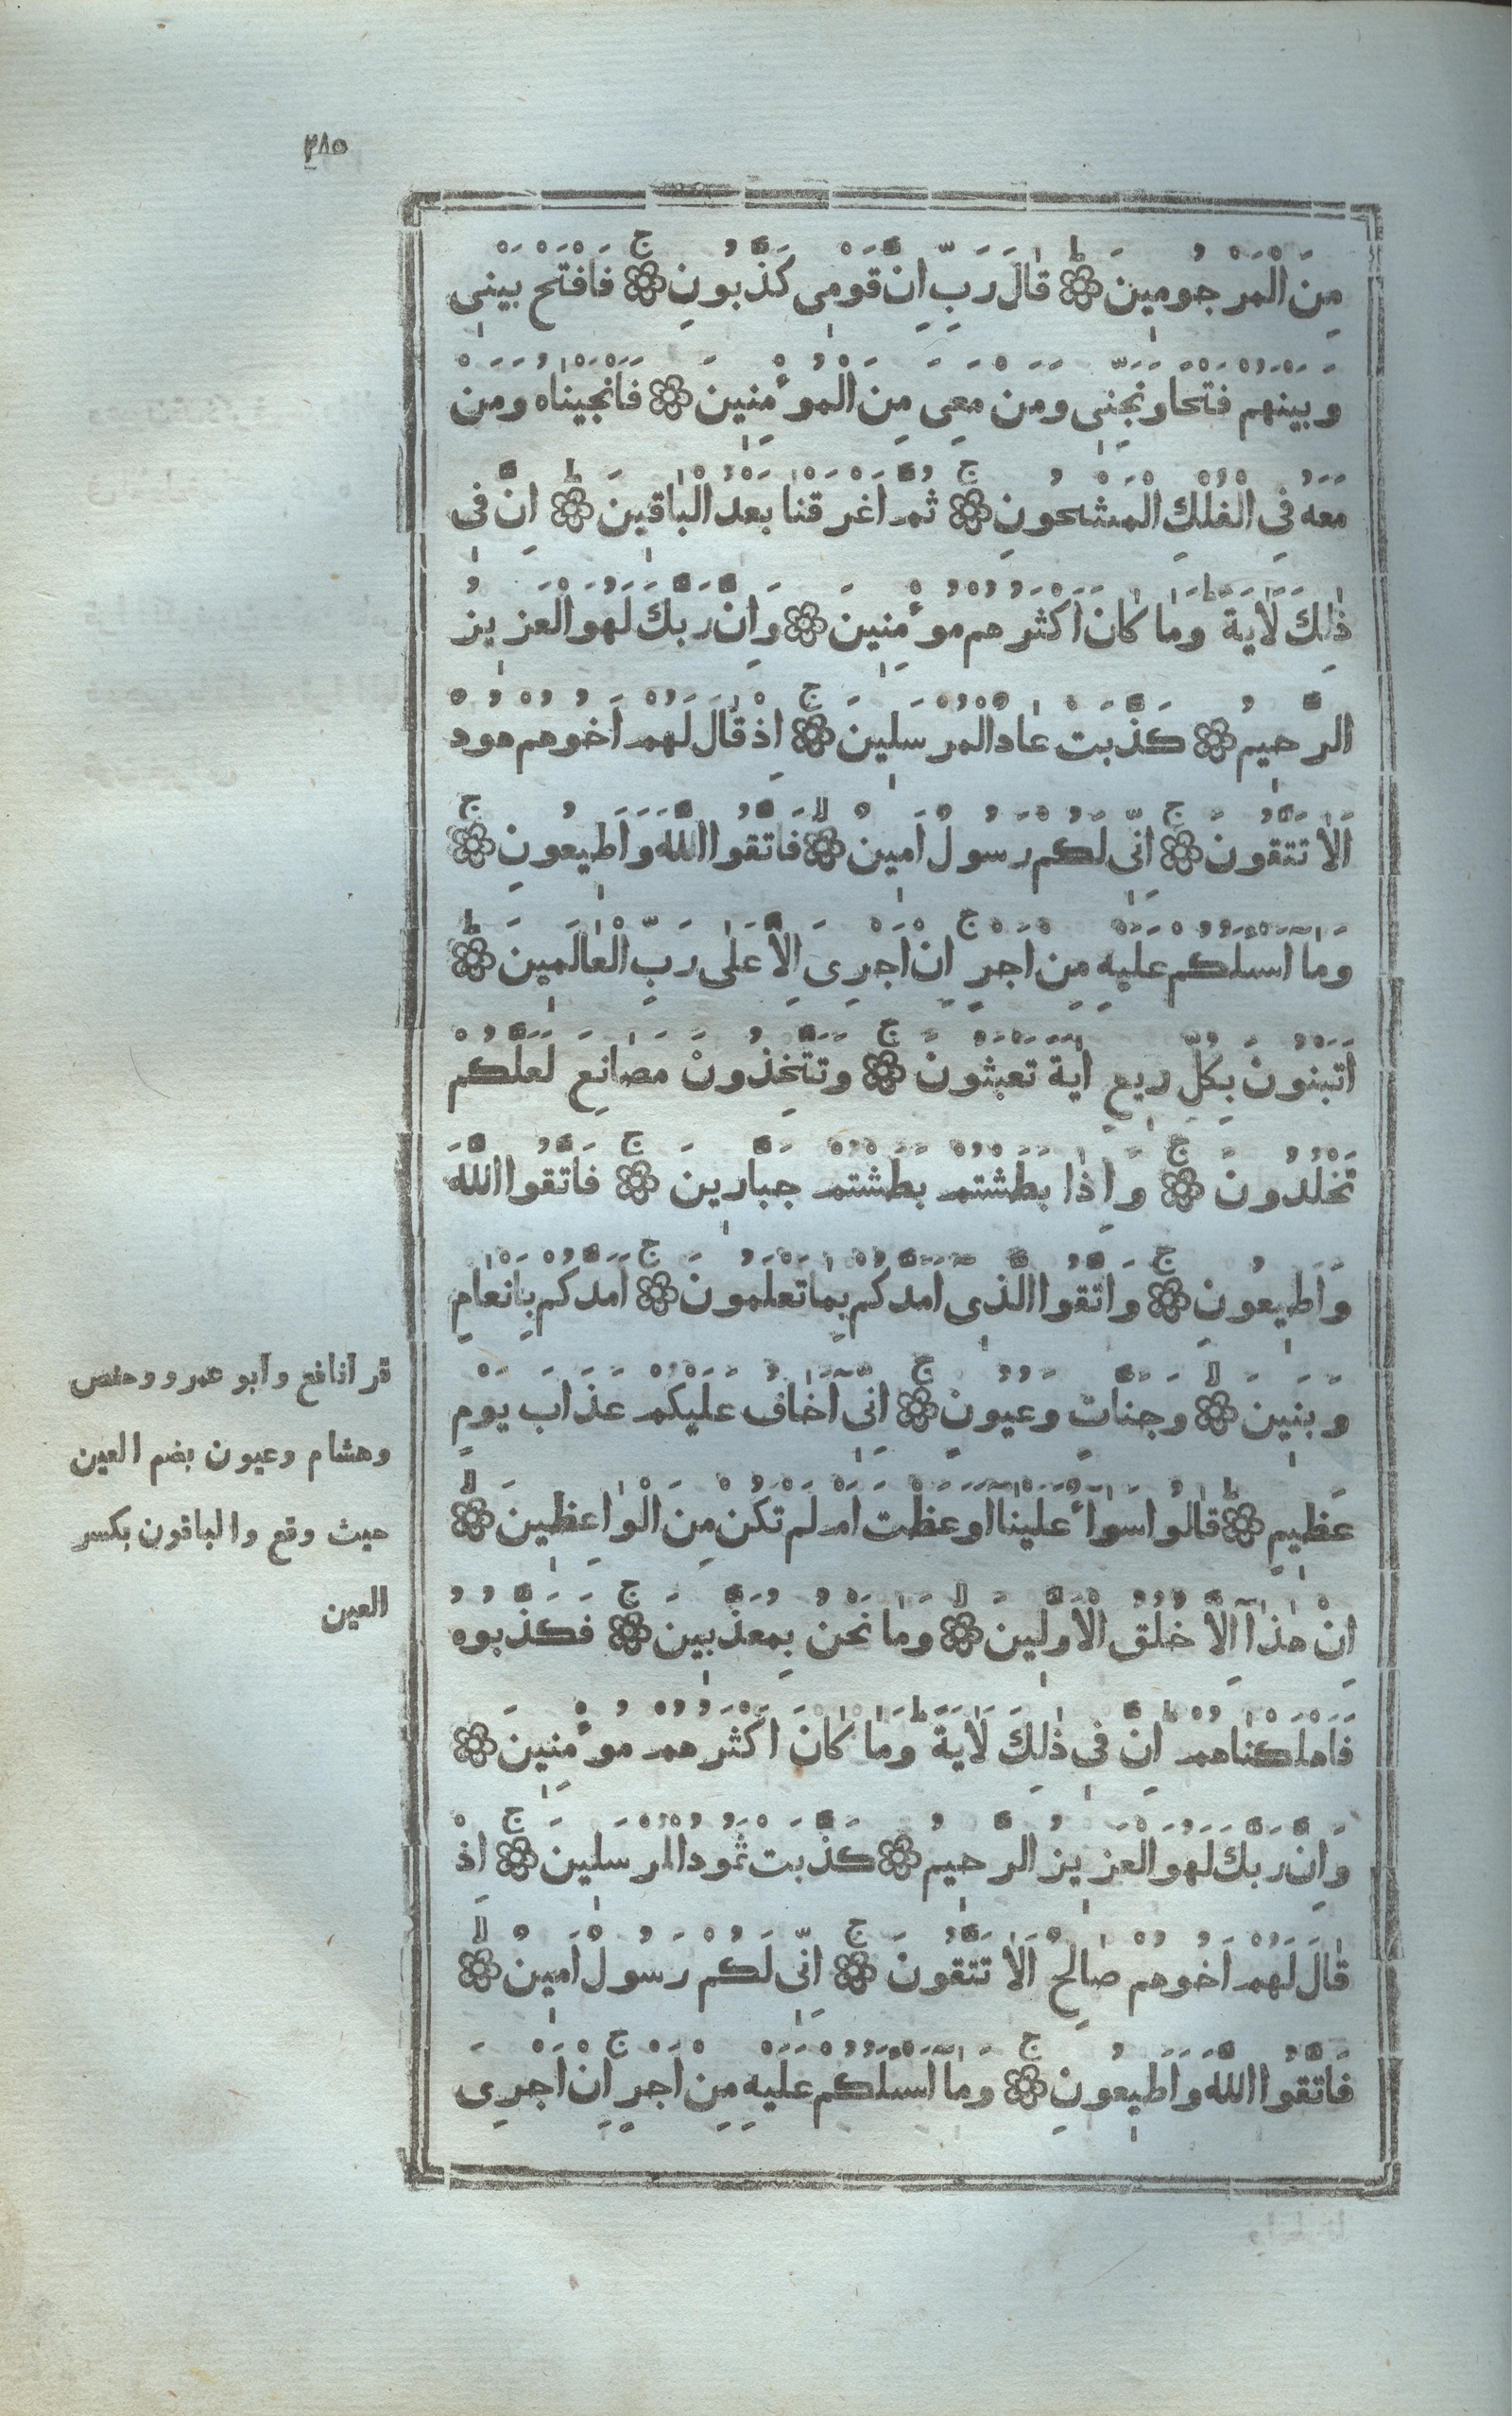 ٢٨٥
مِنَ الْمَرْجُومِينَ ۞ قَالَ رَبِّ اِنَّ قَوْمِى كَذَّبُونِ ۞ فَافْتَحْ بَيْنِى
وَبَيْنَهُمْ فَتْحًا وَنَجِّنِى وَمَنْ مَعِىَ مِنَ الْمُوءْمِنِينَ ۞ فَاَنْجَيْنَاهُ وَمَنْ
مَعَهُ فِى الْفُلْكِ الْمَشْحُونِ ۞ ثُمَّ اَغْرَقْنَا بَعْدُ الْبَاقِينَ ۞ اِنَّ فِى
ذٰلِكَ لَاٰيَةً وَمَا كَانَ اَكْثَرُهُمْ مُوءْمِنِينَ ۞ وَاِنَّ رَبَّكَ لَهُوَ الْعَزِيزُ
الرَّحِيمُ ۞ كَذَّبَتْ عَادٌ الْمُرْسَلِينَ ۞ اِذْ قَالَ لَهُمْ اَخُوهُمْ هُودٌ
اَلَا تَتَّقُونَ ۞ اِنِّى لَكُمْ رَسُولٌ اَمِينٌ ۞ فَاتَّقُوا اللّٰهَ وَاَطِيعُونِ ۞
وَمَا اَسْـَٔلُكُمْ عَلَيْهِ مِنْ اَجْرٍ اِنْ اَجْرِىَ اِلَّا عَلٰى رَبِّ الْعَالَمِينَ ۞
اَتَبْنُونَ بِكُلِّ رِيعٍ اٰيَةً تَعْبَثُونَ ۞ وَتَتَّخِذُونَ مَصَانِعَ لَعَلَّكُمْ
تَخْلُدُونَ ۞ وَاِذَا بَطَشْتُمْ بَطَشْتُمْ جَبَّارِينَ ۞ فَاتَّقُوا اللّٰهَ
وَاَطِيعُونِ ۞ وَاتَّقُوا الَّذِى اَمَدَّكُمْ بِمَا تَعْلَمُونَ ۞ اَمَدَّكُمْ بِاَنْعَامٍ
وَبَنِينَ ۞ وَجَنَّاتٍ وَعُيُونٍ ۞ اِنِّى اَخَافُ عَلَيْكُمْ عَذَابَ يَوْمٍ
عَظِيمٍ ۞ قَالُوا سَوَاءٌ عَلَيْنَا اَوَعَظْتَ اَمْ لَمْ تَكُنْ مِنَ الْوَاعِظِينَ ۞
اِنْ هٰذَا اِلَّا خُلُقُ الْاَوَّلِينَ ۞ وَمَا نَحْنُ بِمُعَذَّبِينَ ۞ فَكَذَّبُوهُ
فَاَهْلَكْنَاهُمْ اِنَّ فِى ذٰلِكَ لَاٰيَةً وَمَا كَانَ اَكْثَرُهُمْ مُوءْمِنِينَ ۞
وَاِنَّ رَبَّكَ لَهُوَ الْعَزِيزُ الرَّحِيمُ ۞ كَذَّبَتْ ثَمُودُ الْمُرْسَلِينَ ۞ اِذْ
قَالَ لَهُمْ اَخُوهُمْ صَالِحٌ اَلَا تَتَّقُونَ ۞ اِنِّى لَكُمْ رَسُولٌ اَمِينٌ ۞
فَاتَّقُوا اللّٰهَ وَاَطِيعُونِ ۞ وَمَا اَسْـَٔلُكُمْ عَلَيْهِ مِنْ اَجْرٍ اِنْ اَجْرِىَ
قرأ نافع وأبو عمرو وحفص
وهشام وعيون بضم العين
حيث وقع والباقون بكسر
العين